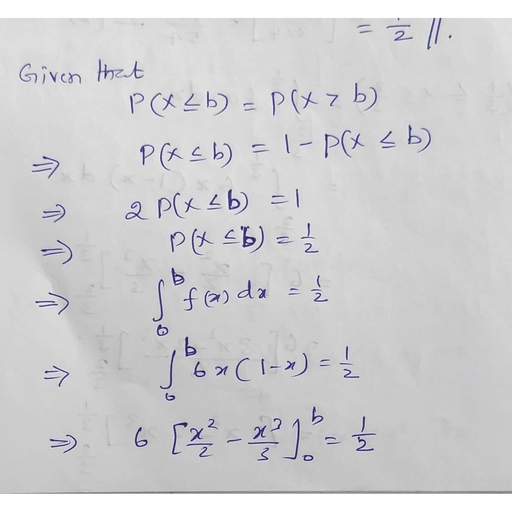 = 1/2 //.
Given that
P(X ≤ b) = P(X > b)
⇒ P(X ≤ b) = 1 - P(X ≤ b)
⇒ 2 P(X ≤ b) = 1
⇒ P(X ≤ b) = 1/2
⇒ ∫₀ᵇ f(x) dx = 1/2
⇒ ∫₀ᵇ 6x(1-x) = 1/2
⇒ 6 [x²/2 - x³/3]₀ᵇ = 1/2